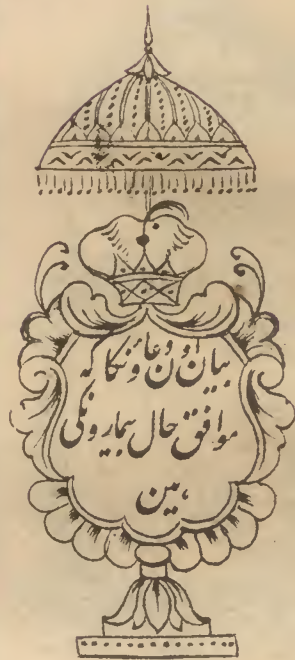 بیان اون دعاؤنکا که
موافق حال بیمارونکی
ہین